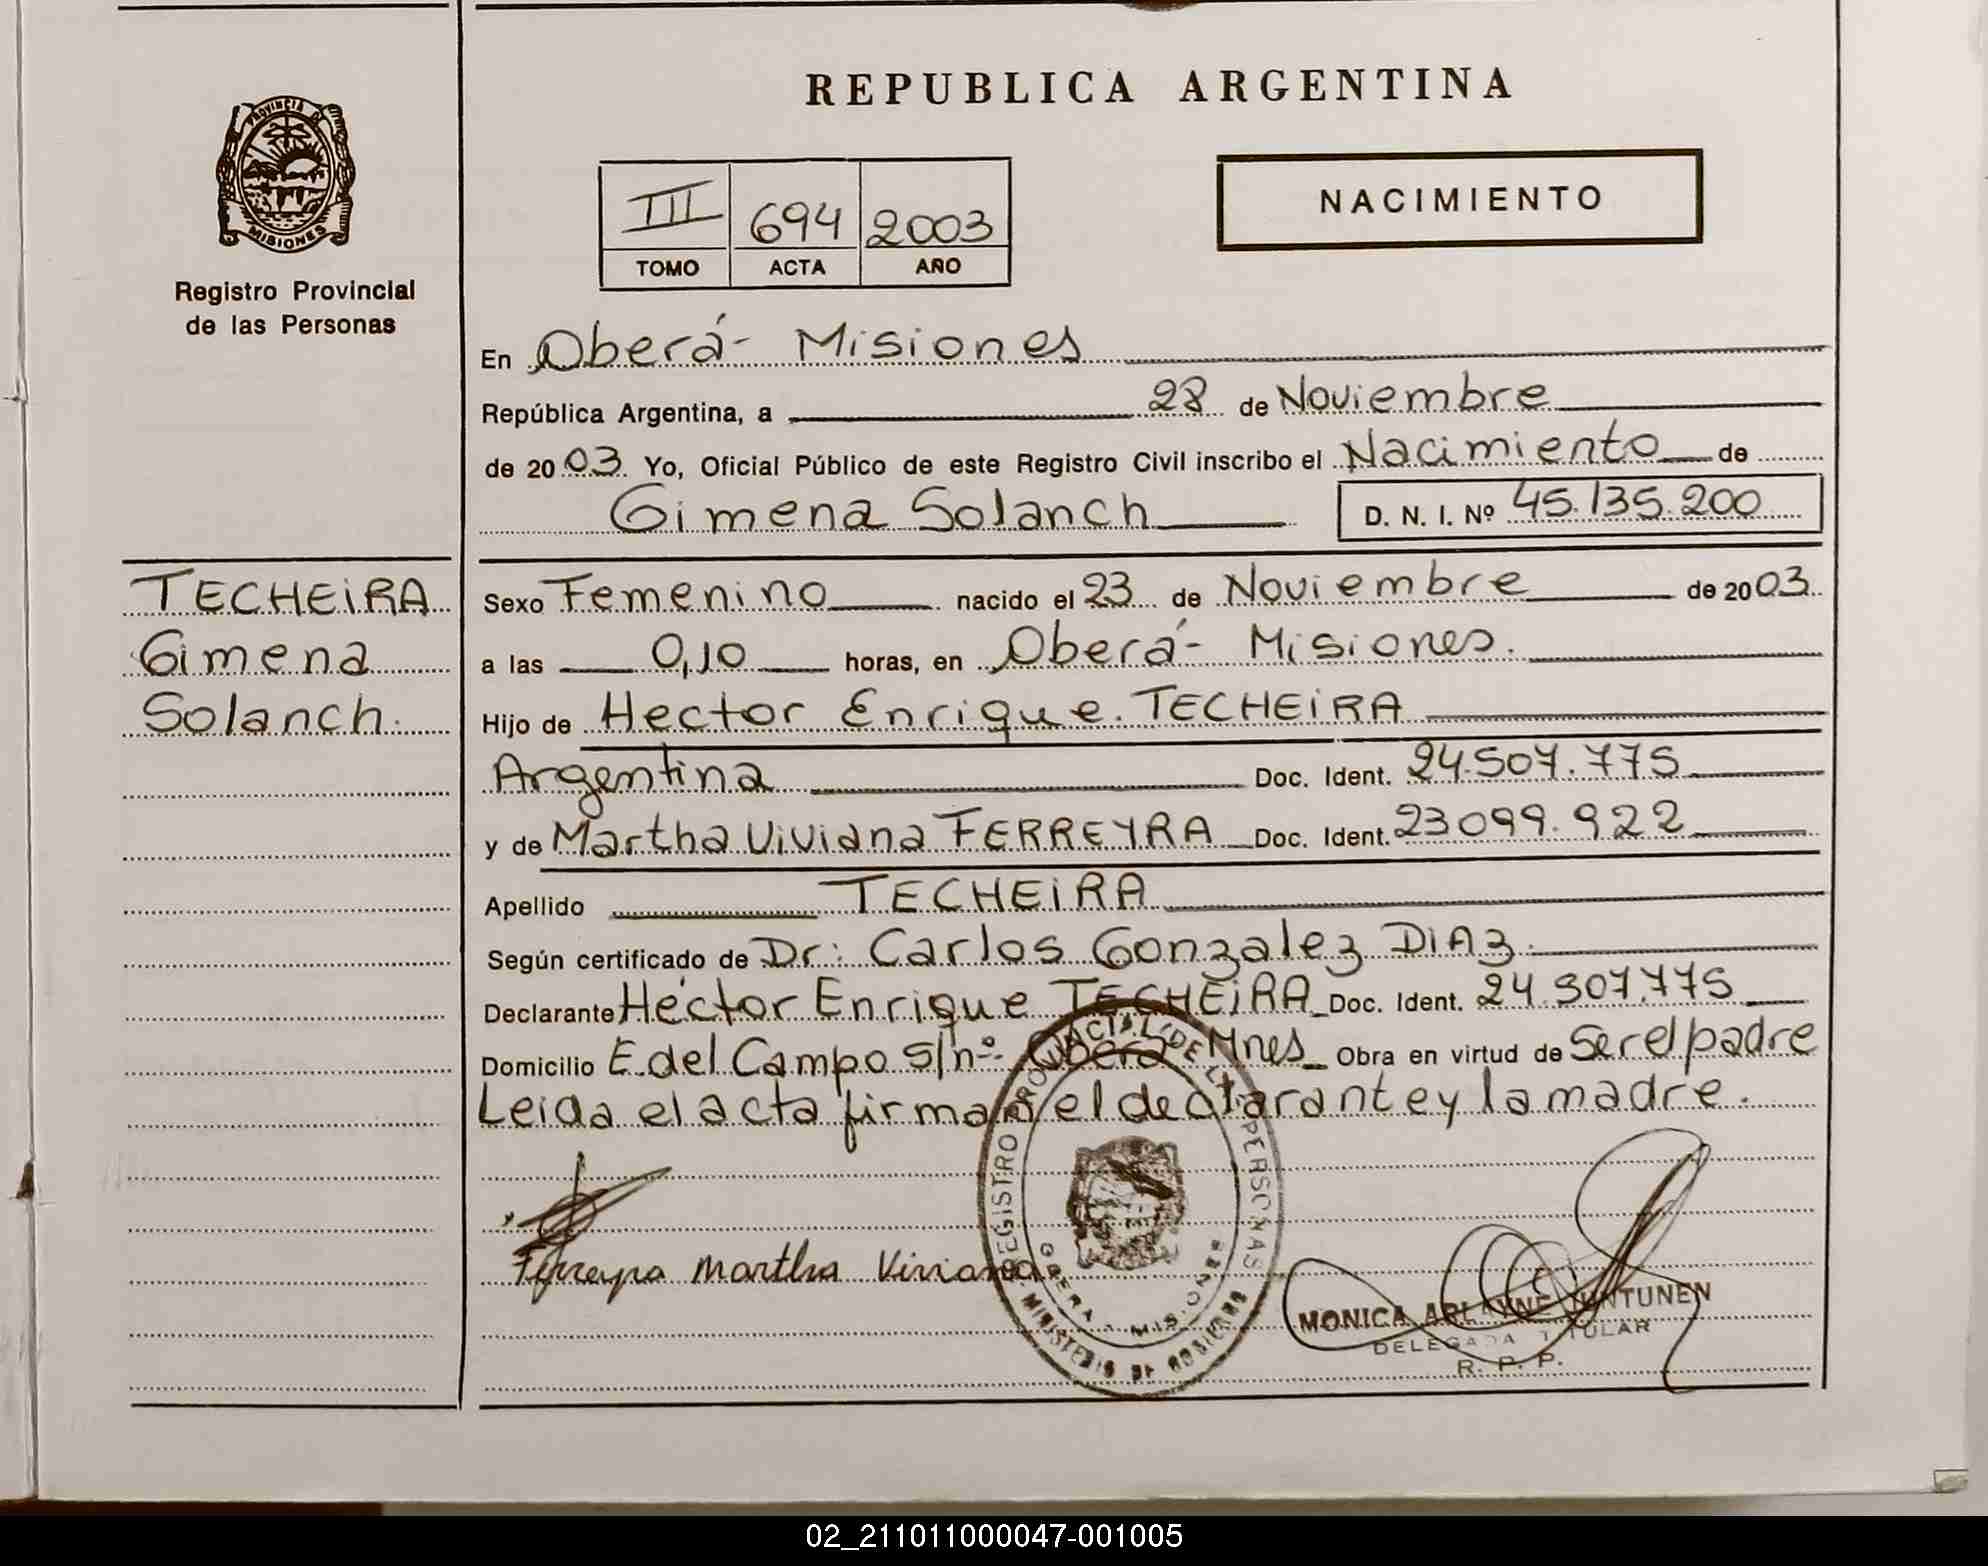 REPUBLICA ARGENTINA
PROVINCIA DE MISIONES
Registro Provincial
de las Personas
NACIMIENTO
III 694 2003
TOMO ACTA AÑO
En Oberá- Misiones
República Argentina, a 28 de Noviembre
de 2003 Yo, Oficial Público de este Registro Civil inscribo el Nacimiento de
Gimena Solanch D. N. I. Nº 45.135.200
TECHEiRA
Gimena
Solanch.
Sexo Femenino nacido el 23 de Noviembre de 2003
a las 0,10 horas, en Oberá- Misiones.
Hijo de Hector Enrique TECHEiRA
Argentina Doc. Ident. 24.507.775
y de Martha Viviana FERREYRA Doc. Ident. 23099.922
Apellido TECHEiRA
Según certificado de Dr: Carlos Gonzalez DiAz.
Declarante Héctor Enrique TECHEiRA Doc. Ident. 24.507.775
Domicilio E.del Campo S/nº. Oberá Mnes Obra en virtud de Ser el padre
Leida el acta firman el declarante y la madre.
Ferreyra Martha Viviana
REGISTRO PROVINCIAL DE LAS PERSONAS
OBERA - MISIONES
MINISTERIO DE GOBIERNO
MONICA ARLAYNE JUNTUNEN
DELEGADA TITULAR
R. P. P.
02_211011000047-001005